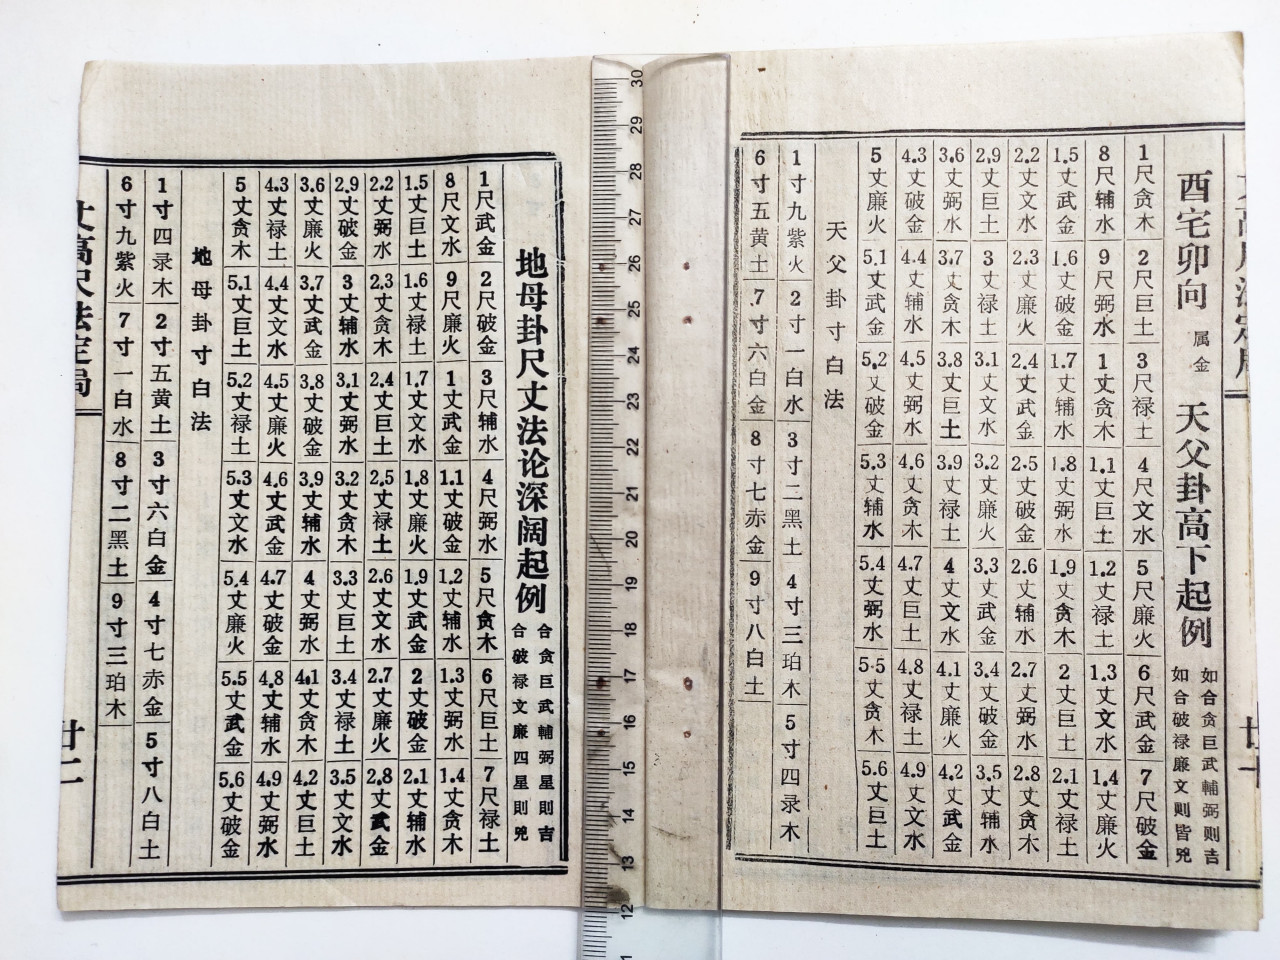 西宅卯向 属金 天父卦高下起例
如合贪巨武輔弼则吉
如合破禄廉文则皆兇
1尺贪木 2尺巨土 3尺禄土 4尺文水 5尺廉火 6尺武金 7尺破金
8尺辅水 9尺弼水 1丈贪木 1.1丈巨土 1.2丈禄土 1.3丈文水 1.4丈廉火
1.5丈武金 1.6丈破金 1.7丈辅水 1.8丈弼水 1.9丈贪木 2丈巨土 2.1丈禄土
2.2丈文水 2.3丈廉火 2.4丈武金 2.5丈破金 2.6丈辅水 2.7丈弼水 2.8丈贪木
2.9丈巨土 3丈禄土 3.1丈文水 3.2丈廉火 3.3丈武金 3.4丈破金 3.5丈辅水
3.6丈弼水 3.7丈贪木 3.8丈巨土 3.9丈禄土 4丈文水 4.1丈廉火 4.2丈武金
4.3丈破金 4.4丈辅水 4.5丈弼水 4.6丈贪木 4.7丈巨土 4.8丈禄土 4.9丈文水
5丈廉火 5.1丈武金 5.2丈破金 5.3丈辅水 5.4丈弼水 5.5丈贪木 5.6丈巨土
天父卦寸白法
1寸九紫火 2寸一白水 3寸二黑土 4寸三珀木 5寸四录木
6寸五黄土 7寸六白金 8寸七赤金 9寸八白土
30
29
28
27
26
25
24
23
22
21
20
19
18
17
16
15
14
13
12
地母卦尺丈法论深阔起例
合贪巨武輔弼星则吉
合破禄文廉四星则兇
1尺武金 2尺破金 3尺辅水 4尺弼水 5尺贪木 6尺巨土 7尺禄土
8尺文水 9尺廉火 1丈武金 1.1丈破金 1.2丈辅水 1.3丈弼水 1.4丈贪木
1.5丈巨土 1.6丈禄土 1.7丈文水 1.8丈廉火 1.9丈武金 2丈破金 2.1丈辅水
2.2丈弼水 2.3丈贪木 2.4丈巨土 2.5丈禄土 2.6丈文水 2.7丈廉火 2.8丈武金
2.9丈破金 3丈辅水 3.1丈弼水 3.2丈贪木 3.3丈巨土 3.4丈禄土 3.5丈文水
3.6丈廉火 3.7丈武金 3.8丈破金 3.9丈辅水 4丈弼水 4.1丈贪木 4.2丈巨土
4.3丈禄土 4.4丈文水 4.5丈廉火 4.6丈武金 4.7丈破金 4.8丈辅水 4.9丈弼水
5丈贪木 5.1丈巨土 5.2丈禄土 5.3丈文水 5.4丈廉火 5.5丈武金 5.6丈破金
地母卦寸白法
1寸四录木 2寸五黄土 3寸六白金 4寸七赤金 5寸八白土
6寸九紫火 7寸一白水 8寸二黑土 9寸三珀木
丈高尺法定局
廿二